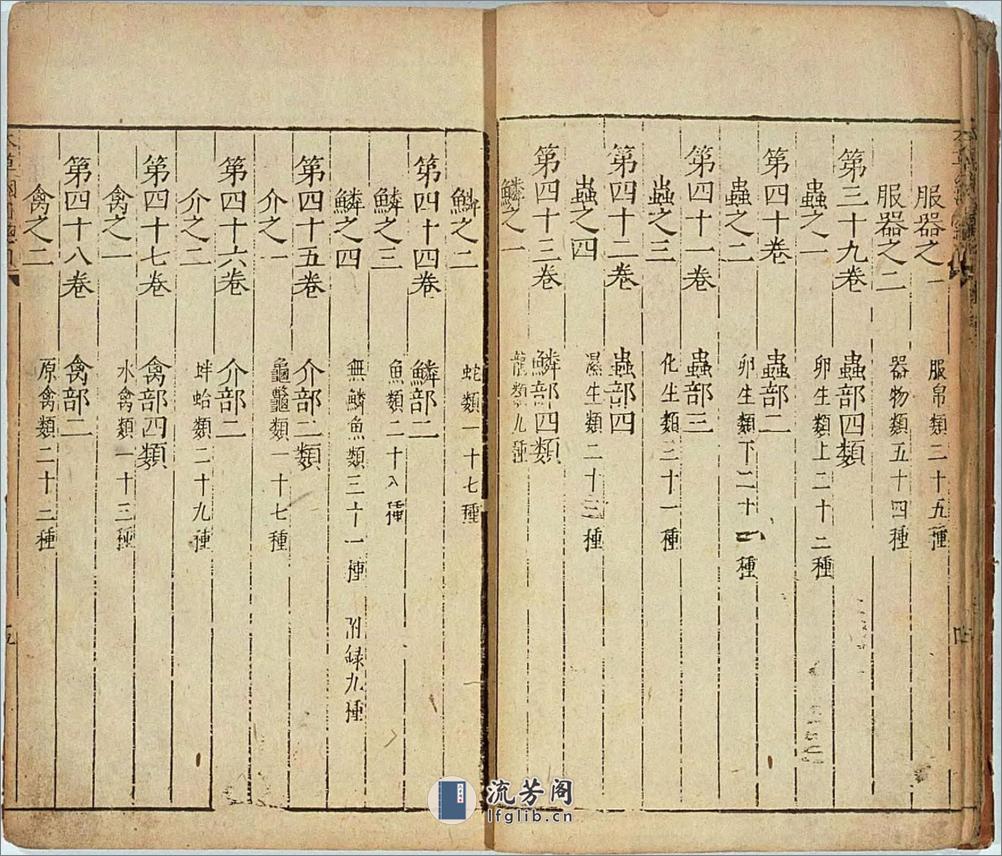 服器之一 服帛類二十五種
服器之二 器物類五十四種
第三十九卷 蟲部四類
蟲之一 卵生類上二十二種
第四十卷 蟲部二
蟲之二 卵生類下二十種
第四十一卷 蟲部三
蟲之三 化生類三十一種
第四十二卷 蟲部四
蟲之四 濕生類二十三種
第四十三卷 鱗部四類
鱗之一 龍類九種
鱗之二 蛇類一十七種
第四十四卷 鱗部二
鱗之三 魚類二十八種
鱗之四 無鱗魚類三十一種 附録九種
第四十五卷 介部二類
介之一 龜鼈類一十七種
第四十六卷 介部二
介之二 蚌蛤類二十九種
第四十七卷 禽部四類
禽之一 水禽類一十三種
第四十八卷 禽部二
禽之二 原禽類二十二種
流芳阁
lfglib.cn